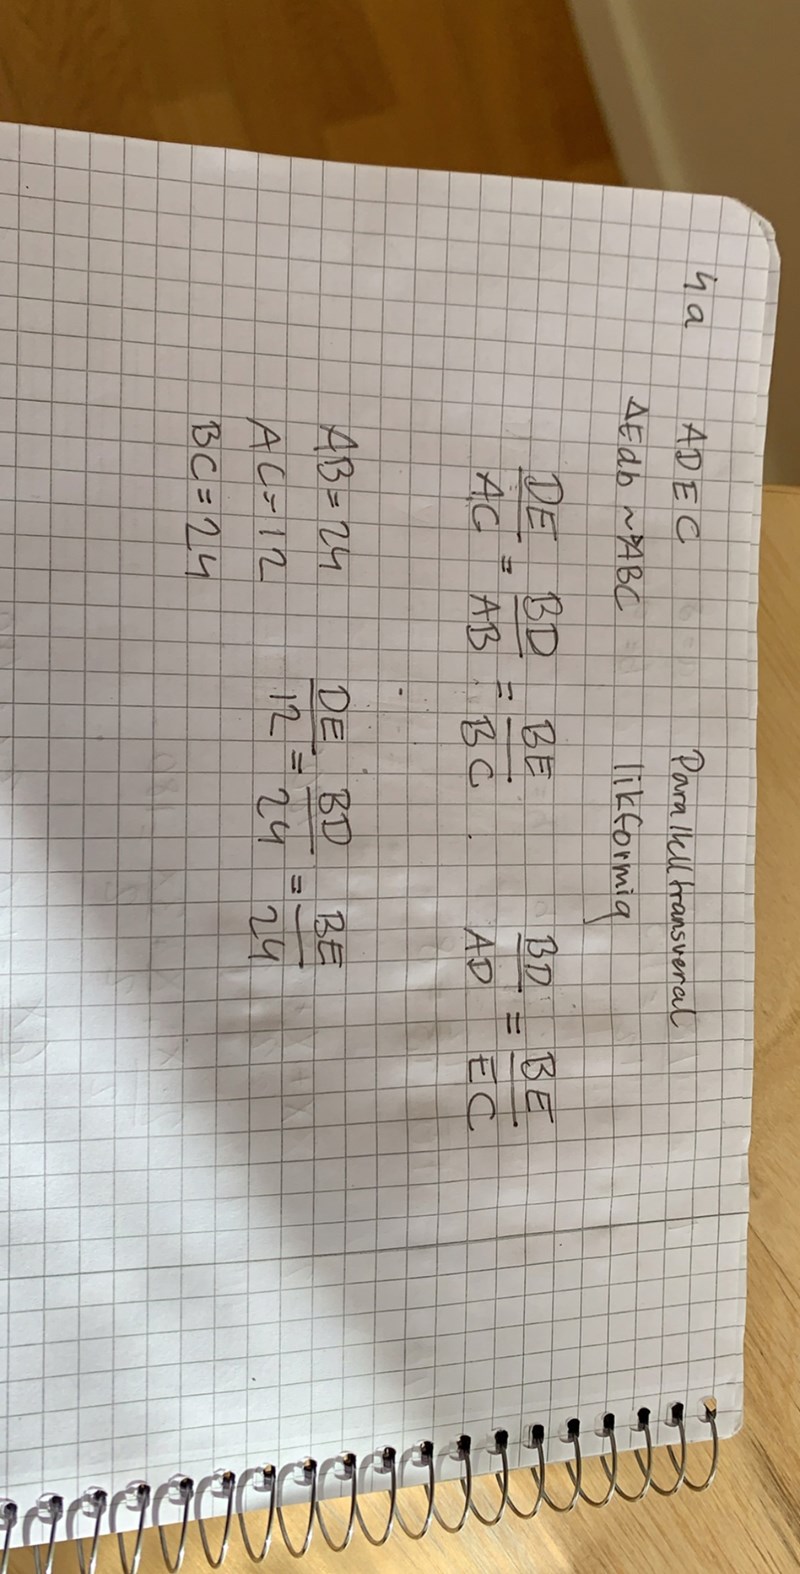 4a ADEC Paralelltransversal
ΔEdb ~ ABC likformig
DE/AC = BD/AB = BE/BC BD/AD = BE/EC
AB = 24 DE/12 = BD/24 = BE/24
AC = 12
BC = 24